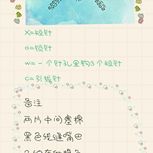 X=短针
o=短针
w=一个针孔里钩3个短针
c=引拔针
备注
两片中间塞棉
黑色线缝嘴巴